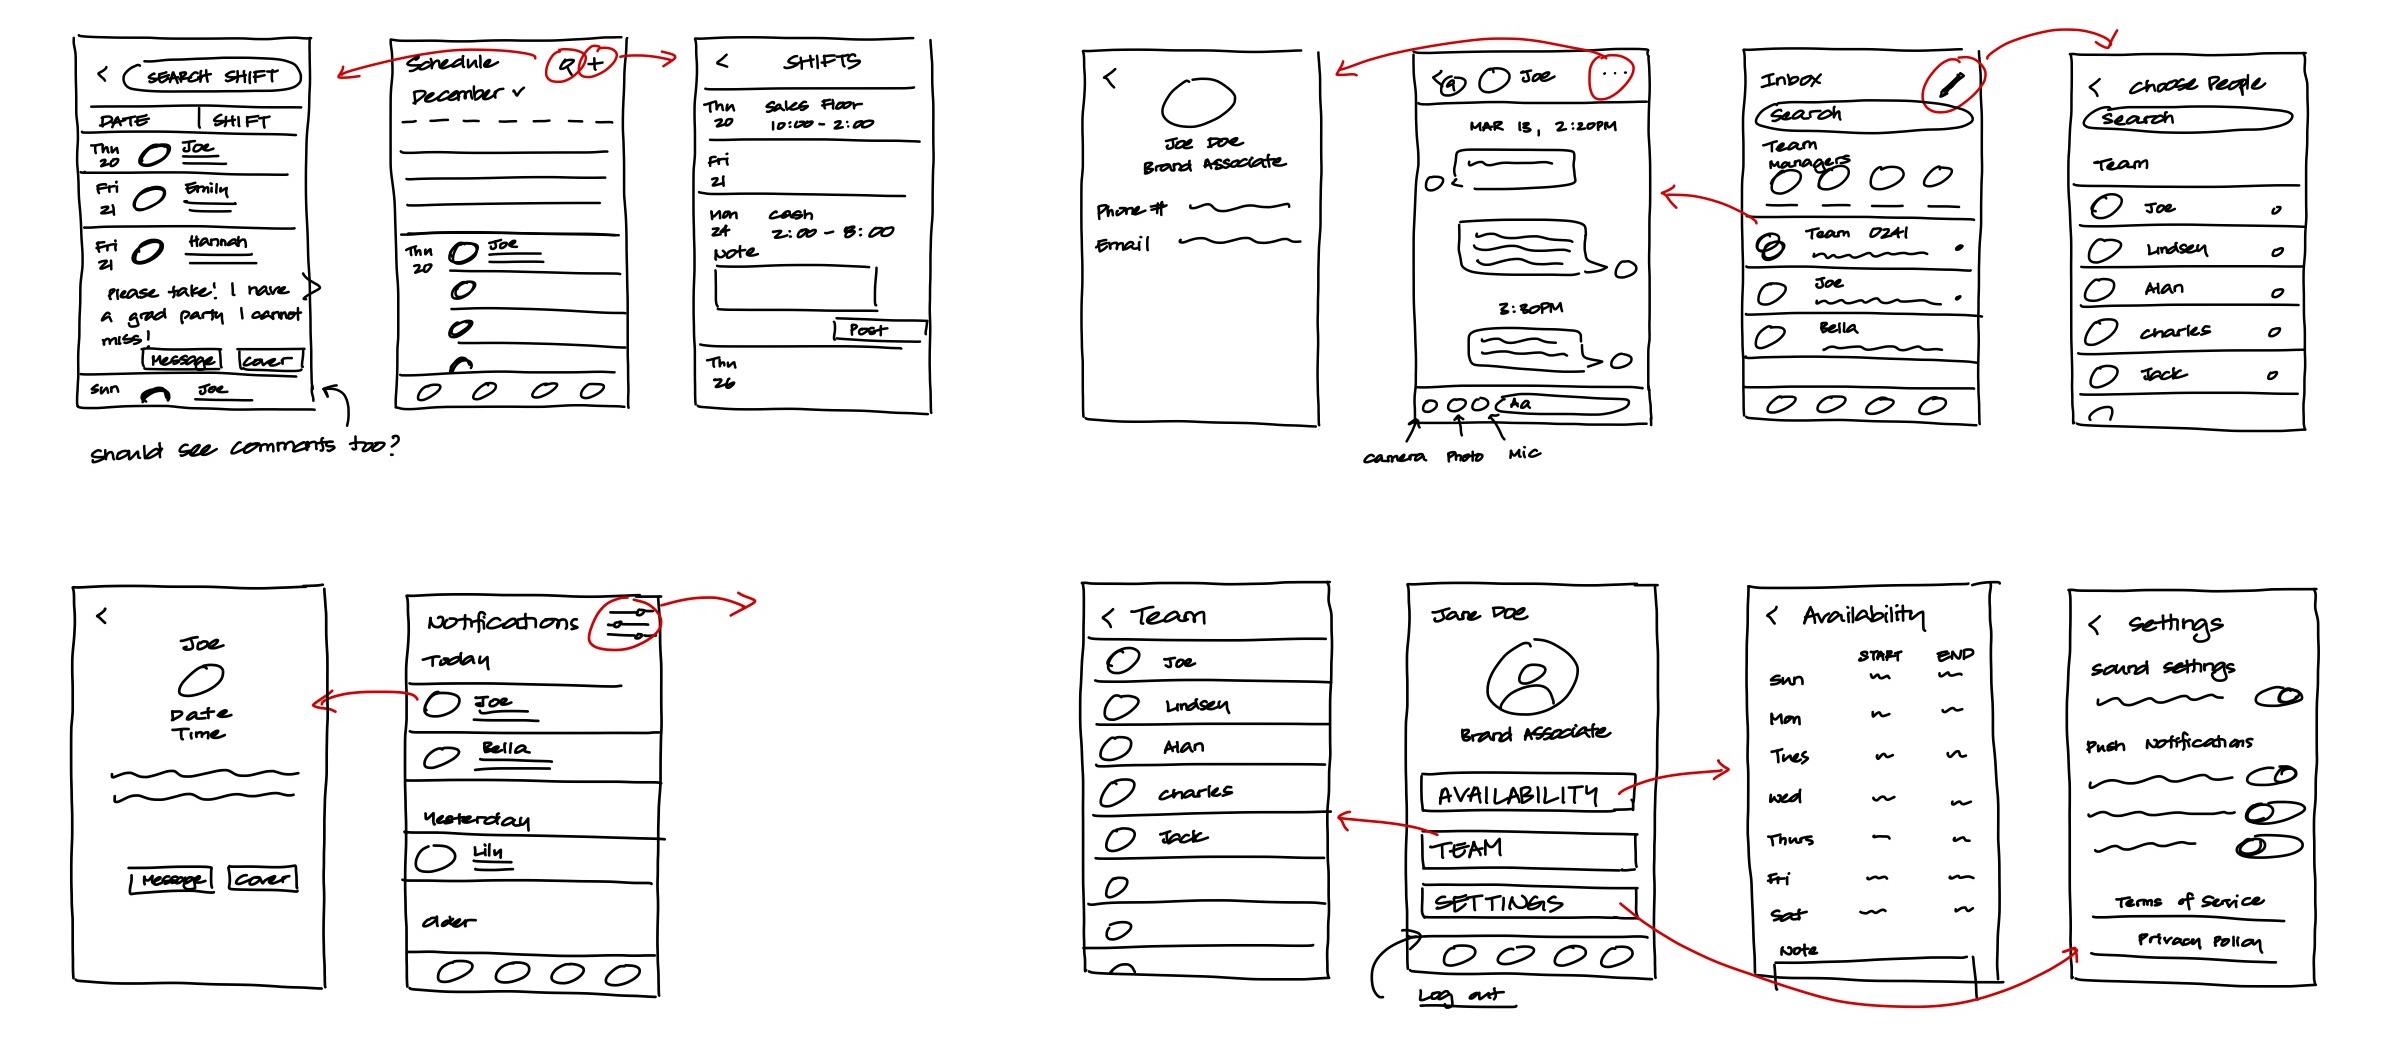 SEARCH SHIFT
DATE
SHIFT
Thu
20
Joe
Fri
21
Emily
Fri
21
Hannah
Please take! I have
a grad party I cannot
miss!
Message
Cover
Sun
Joe
Should see comments too?
Schedule
+
December
Thu
20
Joe
SHIFTS
Thu
20
Sales Floor
10:00 - 2:00
Fri
21
Mon
24
Cash
2:00 - 8:00
Note
Post
Thu
26
Joe Doe
Brand Associate
Phone #
Email
Joe
...
MAR 13, 2:20PM
3:30PM
Aa
Camera
Photo
Mic
Inbox
Search
Team
Managers
Team 0241
Joe
Bella
Choose People
Search
Team
Joe
Lindsey
Alan
Charles
Jack
Joe
Date
Time
Message
Cover
Notifications
Today
Joe
Bella
Yesterday
Lily
Older
Team
Joe
Lindsey
Alan
Charles
Jack
Jane Doe
Brand Associate
AVAILABILITY
TEAM
SETTINGS
Log out
Availability
START
END
Sun
Mon
Tues
Wed
Thurs
Fri
Sat
Note
Settings
Sound Settings
Push Notifications
Terms of Service
Privacy Policy